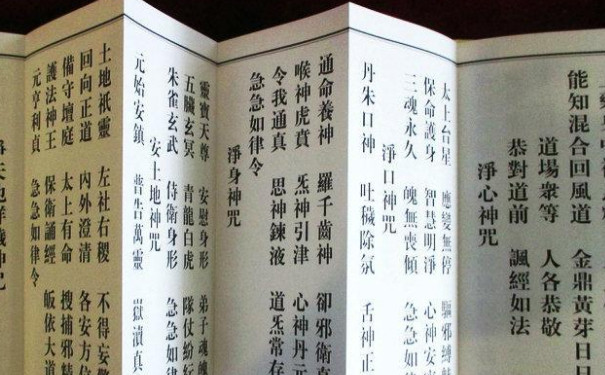 能知混合回風道 金鼎黃芽日日
道場衆等 人各恭敬
恭對道前 諷經如法
淨心神咒
太上台星 應變無停 驅邪縛魅
保命護身 智慧明淨 心神安
三魂永久 魄無喪傾 急急如
淨口神咒
丹朱口神 吐穢除氛 舌神正
通命養神 羅千齒神 卻邪衛真
喉神虎賁 炁神引津 心神丹元
令我通真 思神鍊液 道炁常存
急急如律令
淨身神咒
靈寶天尊 安慰身形 弟子魂魄
五臟玄冥 青龍白虎 隊仗紛紜
朱雀玄武 侍衛身形 急急如律
安土地神咒
元始安鎮 普告萬靈 嶽瀆真
土地祇靈 左社右稷 不得妄驚
回向正道 內外澄清 各安方位
備守壇庭 太上有命 搜捕邪精
護法神王 保衛誦經 皈依大道
元亨利貞 急急如律令